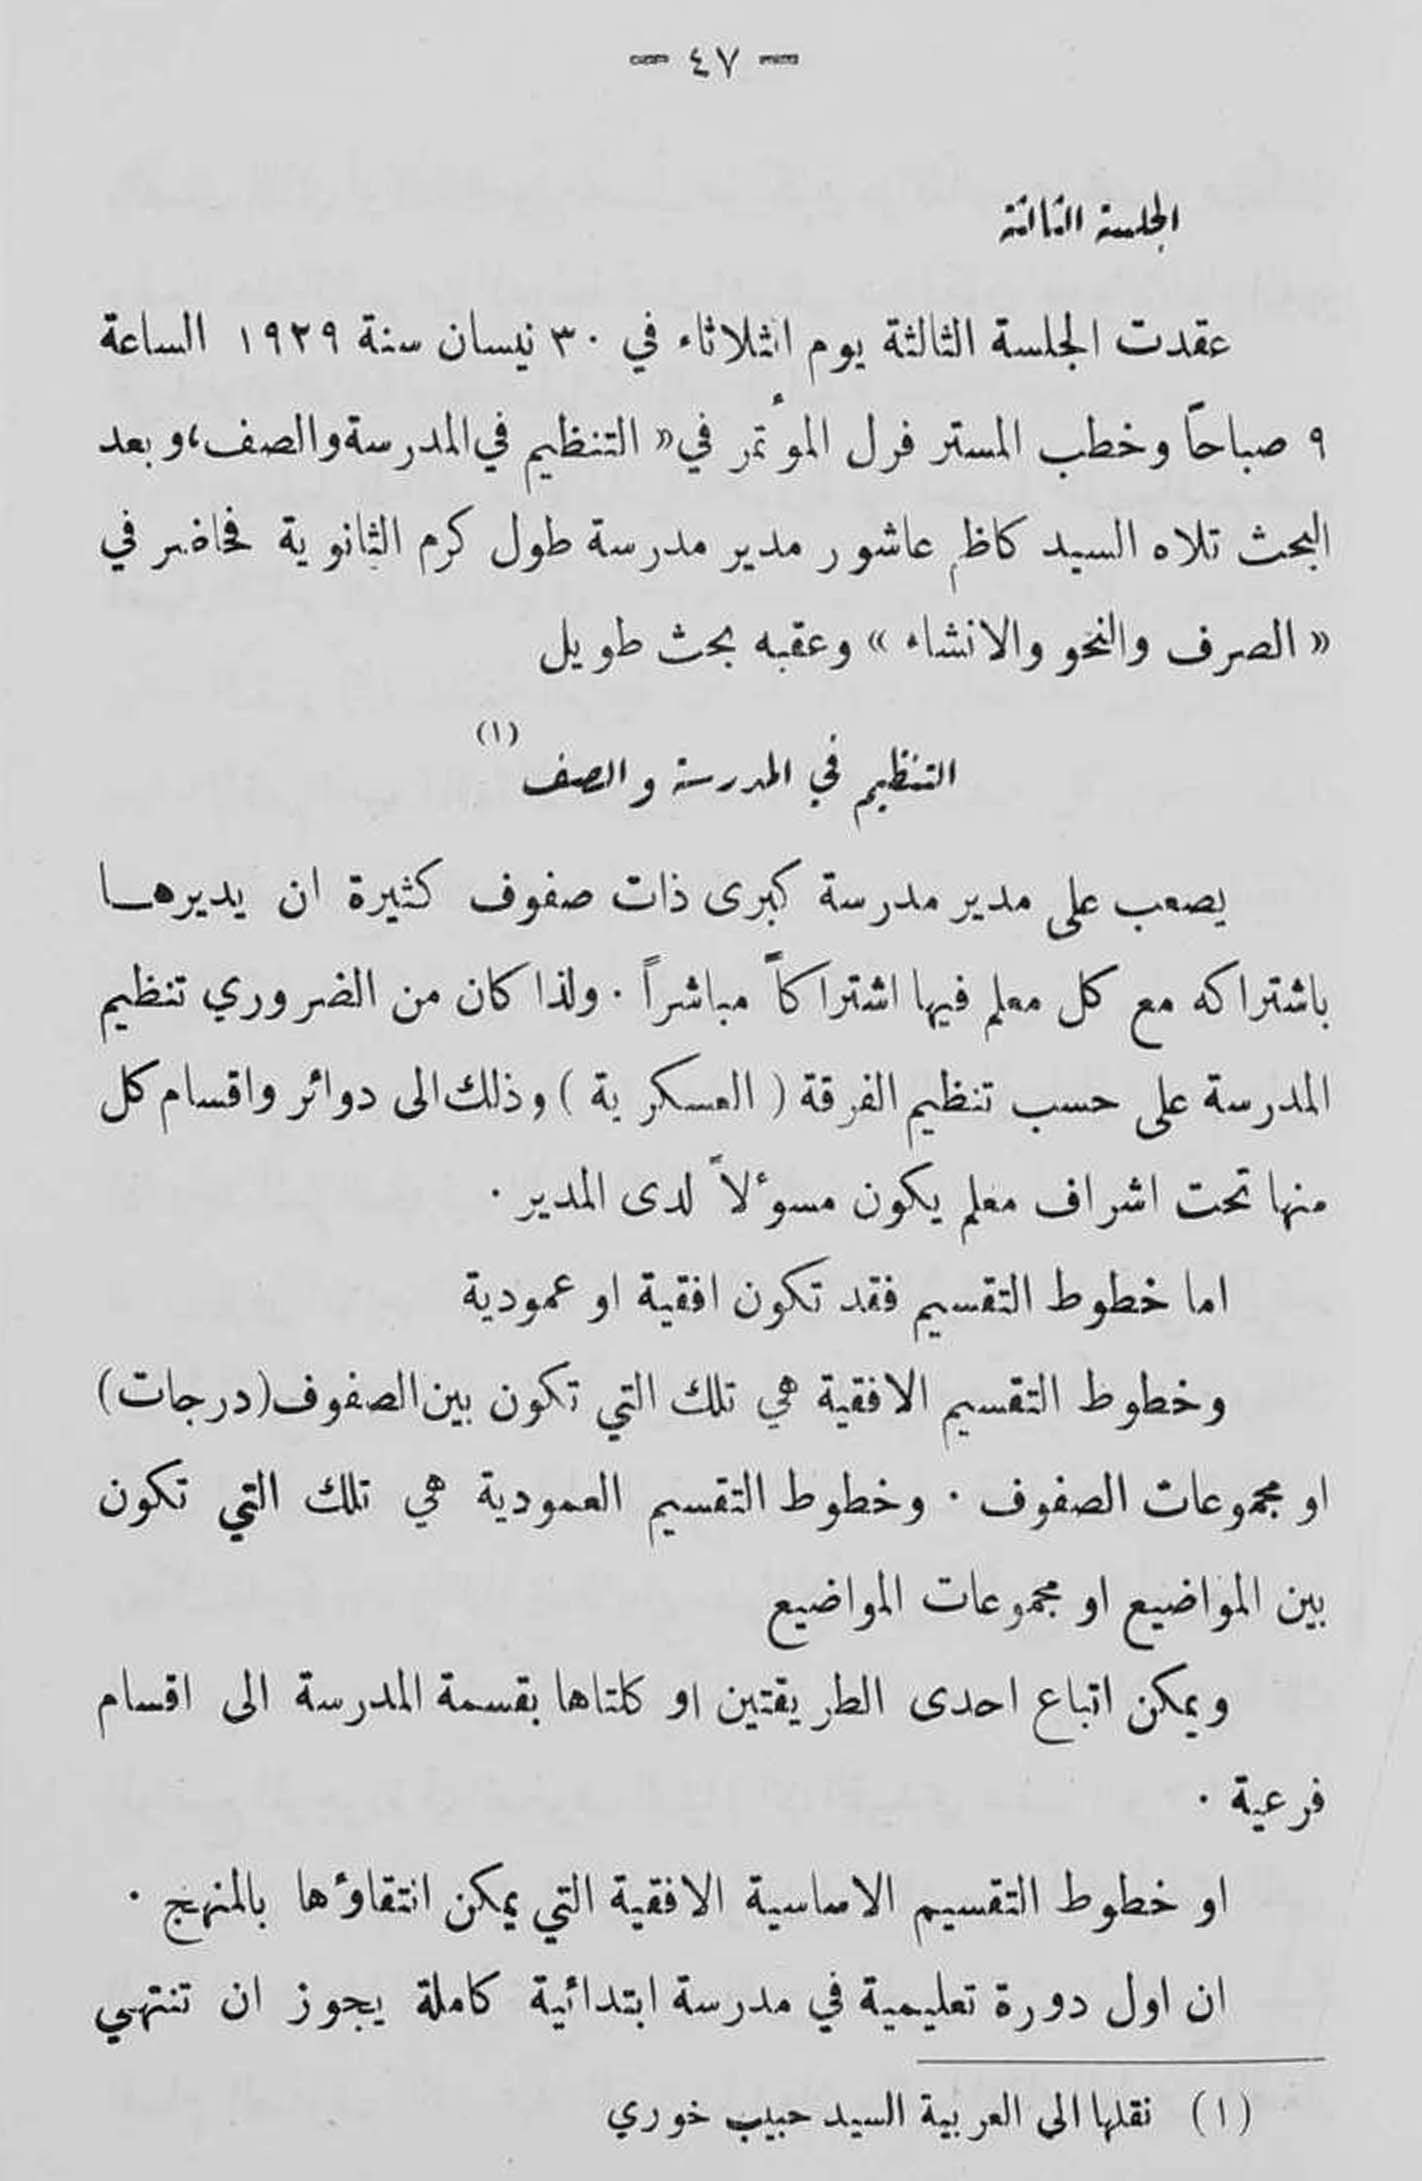 — ٤٧ —
الجلسة الثالثة
عقدت الجلسة الثالثة يوم الثلاثاء في ٣٠ نيسان سنة ١٩٢٩ الساعة
٩ صباحاً وخطب المستر فرل المؤتمر في « التنظيم في المدرسة والصف، وبعد
البحث تلاه السيد كاظم عاشور مدير مدرسة طول كرم الثانوية فحاضر في
« الصرف والنحو والانشاء » وعقبه بحث طويل
التنظيم في المدرسة والصف (١)
يصعب على مدير مدرسة كبرى ذات صفوف كثيرة ان يديرها
باشتراكه مع كل معلم فيها اشتراكاً مباشراً . ولذا كان من الضروري تنظيم
المدرسة على حسب تنظيم الفرقة ( العسكرية ) وذلك الى دوائر واقسام كل
منها تحت اشراف معلم يكون مسوءلاً لدى المدير .
اما خطوط التقسيم فقد تكون افقية او عمودية
وخطوط التقسيم الافقية هي تلك التي تكون بين الصفوف (درجات)
او مجموعات الصفوف . وخطوط التقسيم العمودية هي تلك التي تكون
بين المواضيع او مجموعات المواضيع
ويمكن اتباع احدى الطريقتين او كلتاها بقسمة المدرسة الى اقسام
فرعية .
او خطوط التقسيم الاساسية الافقية التي يمكن انتقاؤها بالمنهج .
ان اول دورة تعليمية في مدرسة ابتدائية كاملة يجوز ان تنتهي
(١) نقلها الى العربية السيد حبيب خوري